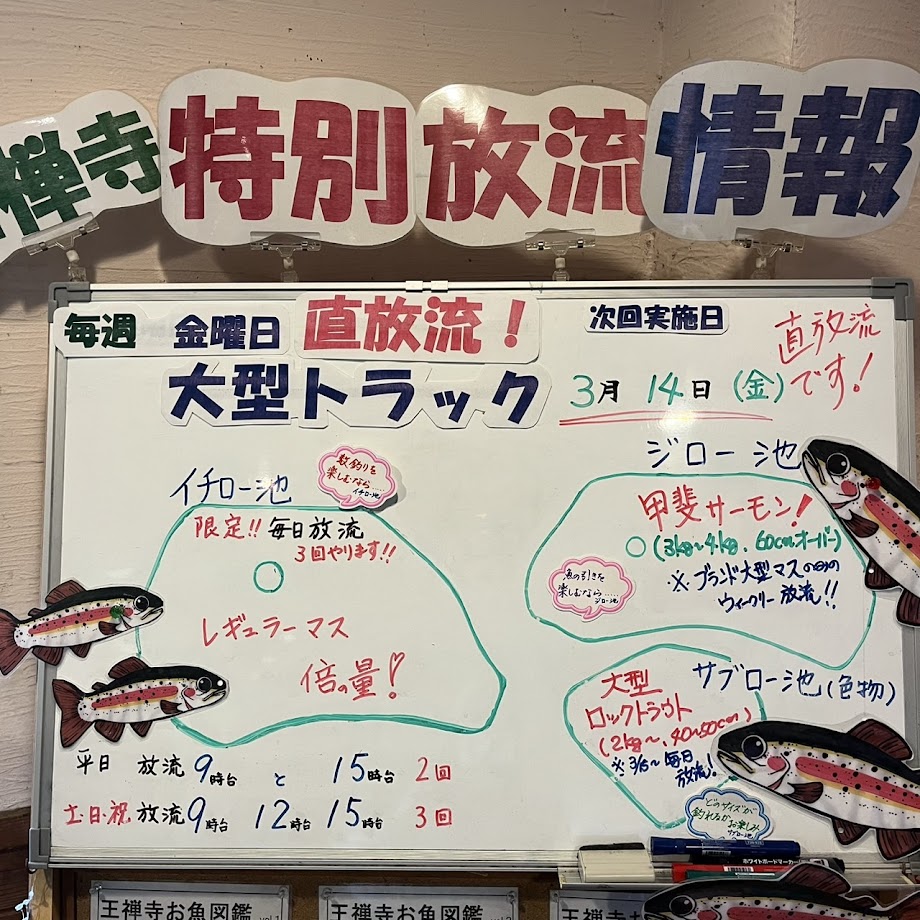 禅寺 特別放流 情報
毎週 金曜日 直放流！
大型トラック
次回実施日
3月 14日 (金)
直放流
です!
イチロー池
数釣りを
楽しむなら……
イチロー池
限定!! 毎日放流
3回やります!!
レギュラーマス
倍の量!
ジロー池
甲斐サーモン!
(3kg〜4kg、60cmオーバー)
※ブランド大型マスのみの
ウィークリー放流!!
魚の引きを
楽しむなら……
ジロー池
サブロー池(色物)
大型
ロックトラウト
(2kg〜、40〜50cm)
※3/8〜毎日
放流!
どのサイズが
釣れるかお楽しみ
サブロー池
平日 放流 9時台 と 15時台 2回
土日祝 放流 9時台 12時台 15時台 3回
ホワイトボードマーカー
王禅寺お魚図鑑 vol.1
王禅寺お魚図鑑 vol.2
王禅寺お